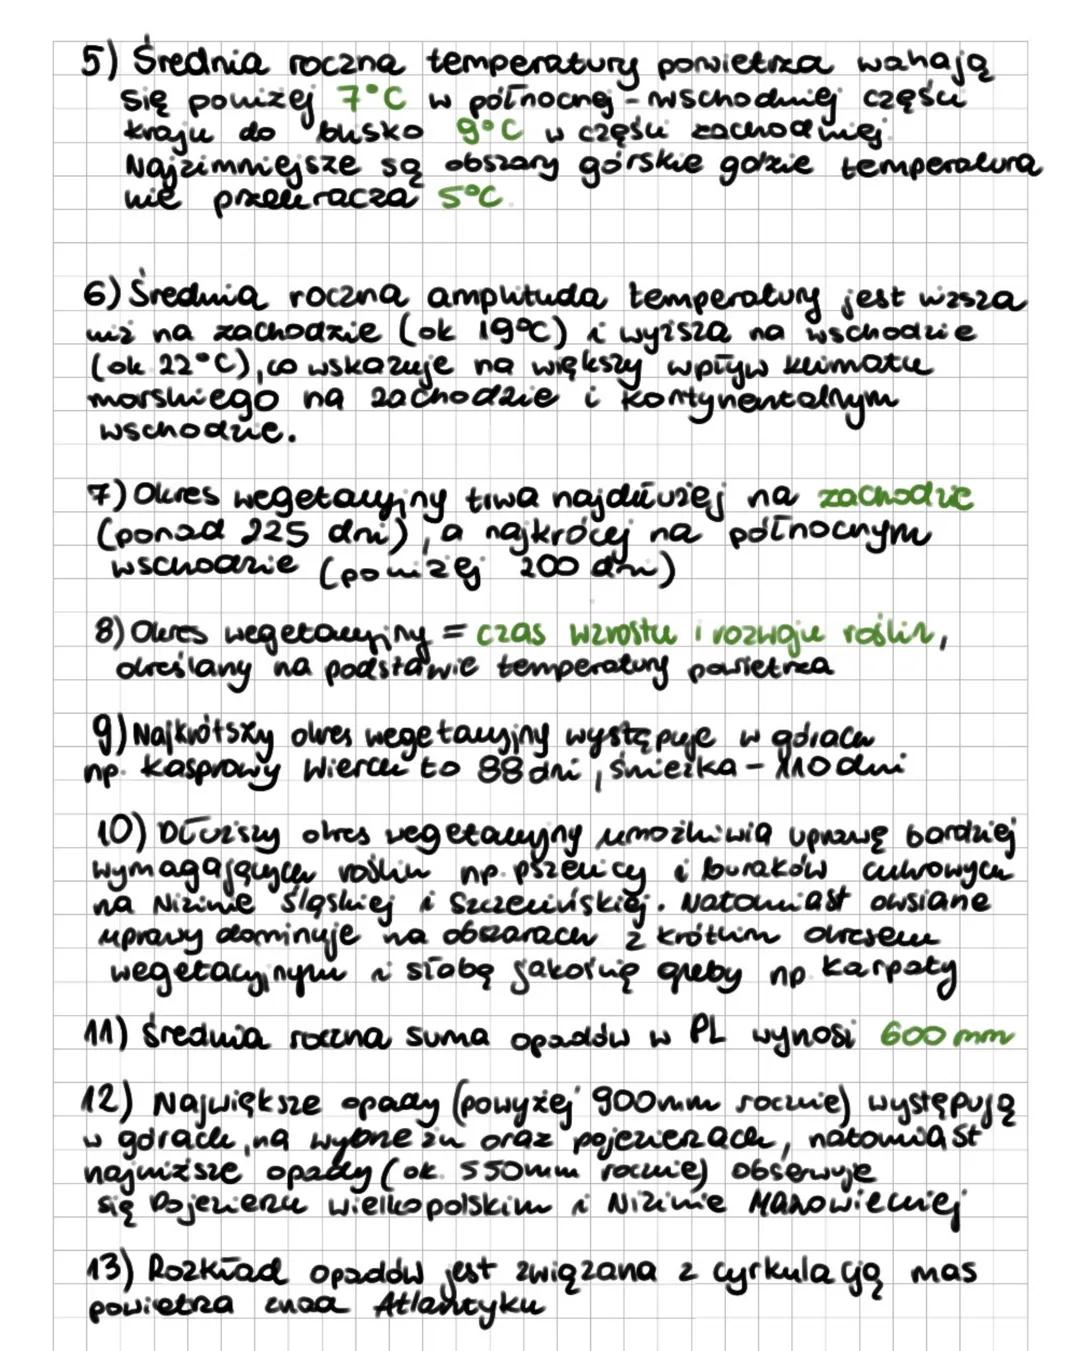 5) Średnia roczna temperatury powietrza wahają
się poniżej 7°C w północnej - wschodniej części
kraju do blisko 9°C w części zachodniej.
Najzimniejsze są obszary górskie gdzie temperatura
nie przekracza 5°C.
6) Średnia roczna amplituda temperatury jest wższa
niż na zachodzie (ok 19°C) i wyższa na wschodzie
(ok 22°C), co wskazuje na większy wpływ klimatu
morskiego na zachodzie i kontynentalnym
wschodzie.
7) Okres wegetacyjny trwa najdłużej na zachodzie
(ponad 225 dni), a najkrócej na północnym
wschodzie (poniżej 200 dni)
8) Okres wegetacyjny = czas wzrostu i rozwoju roślin,
określany na podstawie temperatury powietrza
9) Najkrótszy okres wegetacyjny występuje w górach
np. Kasprowy Wierch to 88 dni, śnieżka - 110 dni
10) Dłuższy okres wegetacyjny umożliwia uprawę bardziej
wymagających roślin np. pszenicy i buraków cukrowych
na Nizinie śląskiej i Szczecińskiej. Natomiast owsiane
uprawy dominuje na obszarach z krótkim okresem
wegetacyjnym i słabą jakością gleby np. Karpaty
11) średnia roczna suma opadów w PL wynosi 600 mm
12) Największe opady (powyżej 900mm rocznie) występują
w górach, na oraz pojezierzach, natomiast
najniższe opady (ok. 550mm rocznie) obserwuje
się Pojezierzu wielkopolskim i Nizinie Mazowieckiej
13) Rozkład opadów jest związana z cyrkulacją mas
powietrza znad Atlantyku